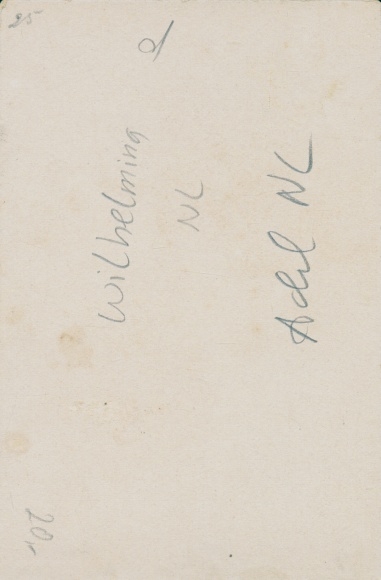 25
Wilhelmina
NL
Adel NL
20,-